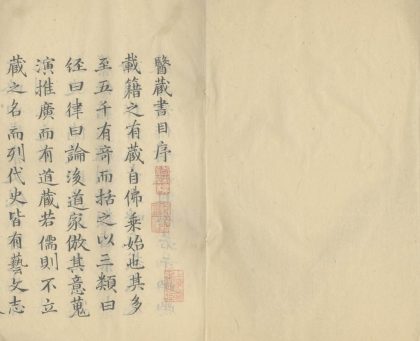 醫藏書目序
載籍之有藏自佛乘始也其多
至五千有奇而括之以三類曰
经曰律曰論後道家倣其意蒐
演推廣而有道藏若儒則不立
藏之名而列代史皆有藝文志